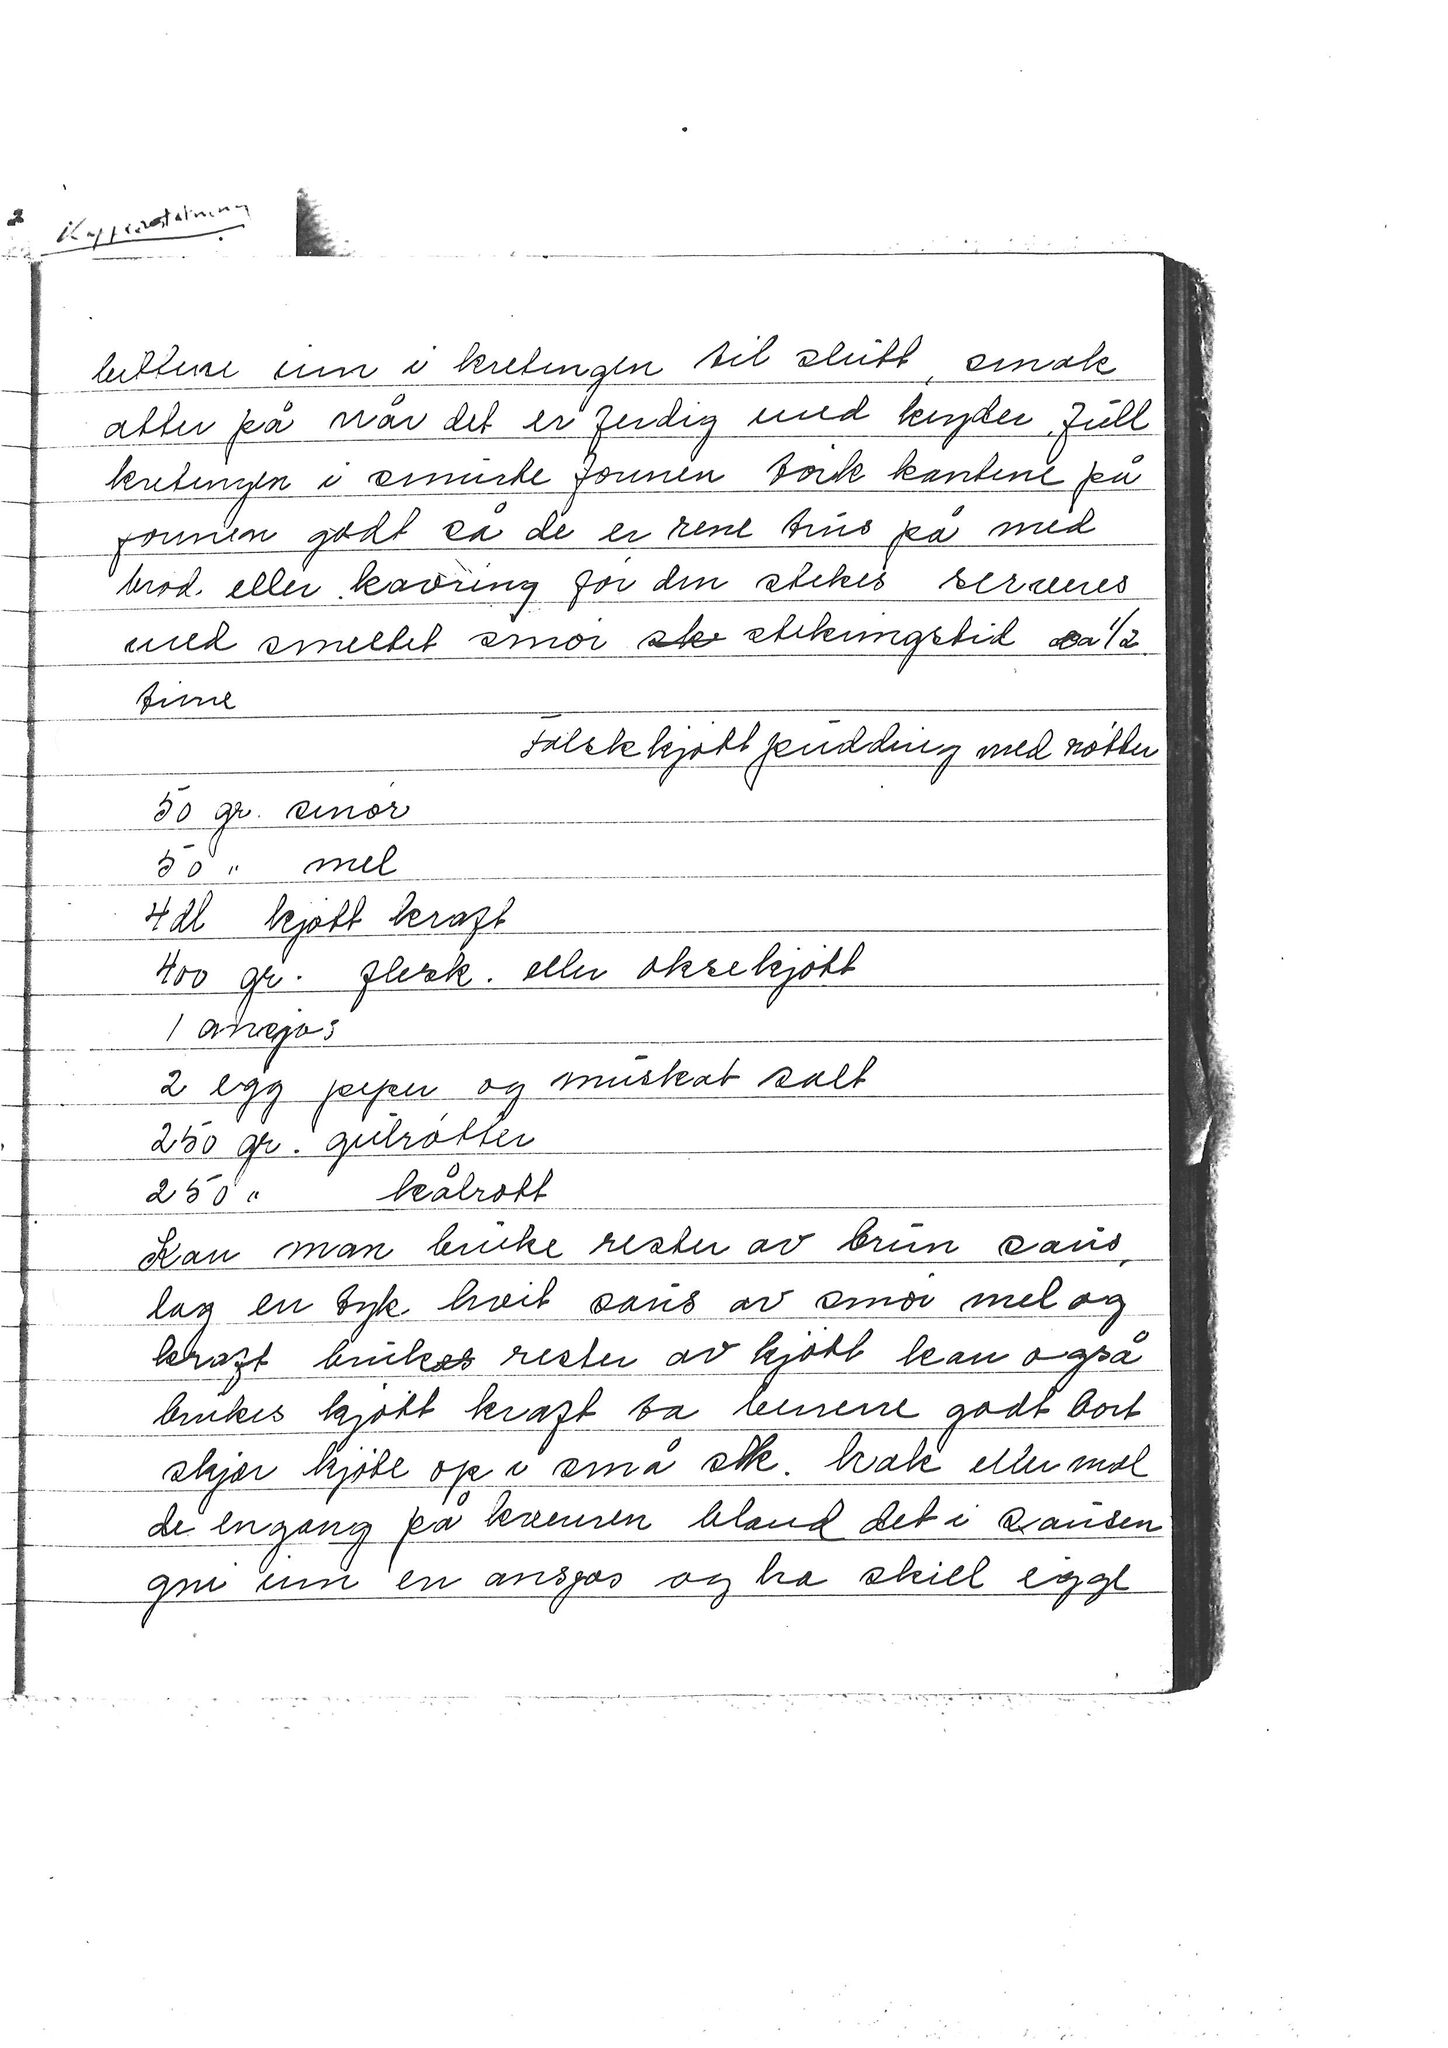 2
bitene inn i kretingen til slutt, smak
atter på når det er ferdig med kryder, full
kretingen i smurte formen tørk kantene på
formen godt så de er rene trus på med
brød. eller kavring før den stekes serveres
med smeltet smør stekningstid ca 1/2
time
Falsk kjøtt pudding med røtter
50 gr. smør
50 " mel
4 dl kjøtt kraft
400 gr. flesk. eller oksekjøtt
1 ansjos
2 egg peper og muskat salt
250 gr. gulrøtter
250 " kålrott
Kan man bruke rester av brun saus,
lag en tyk hvit saus av smør mel og
kraft brukes rester av kjøtt kan også
brukes kjøtt kraft ta benene godt bort
skjær kjøtt op i små stk. hak eller mal
de engang på kvernen bland det i sausen
gni inn en ansjos og ha skilt egge